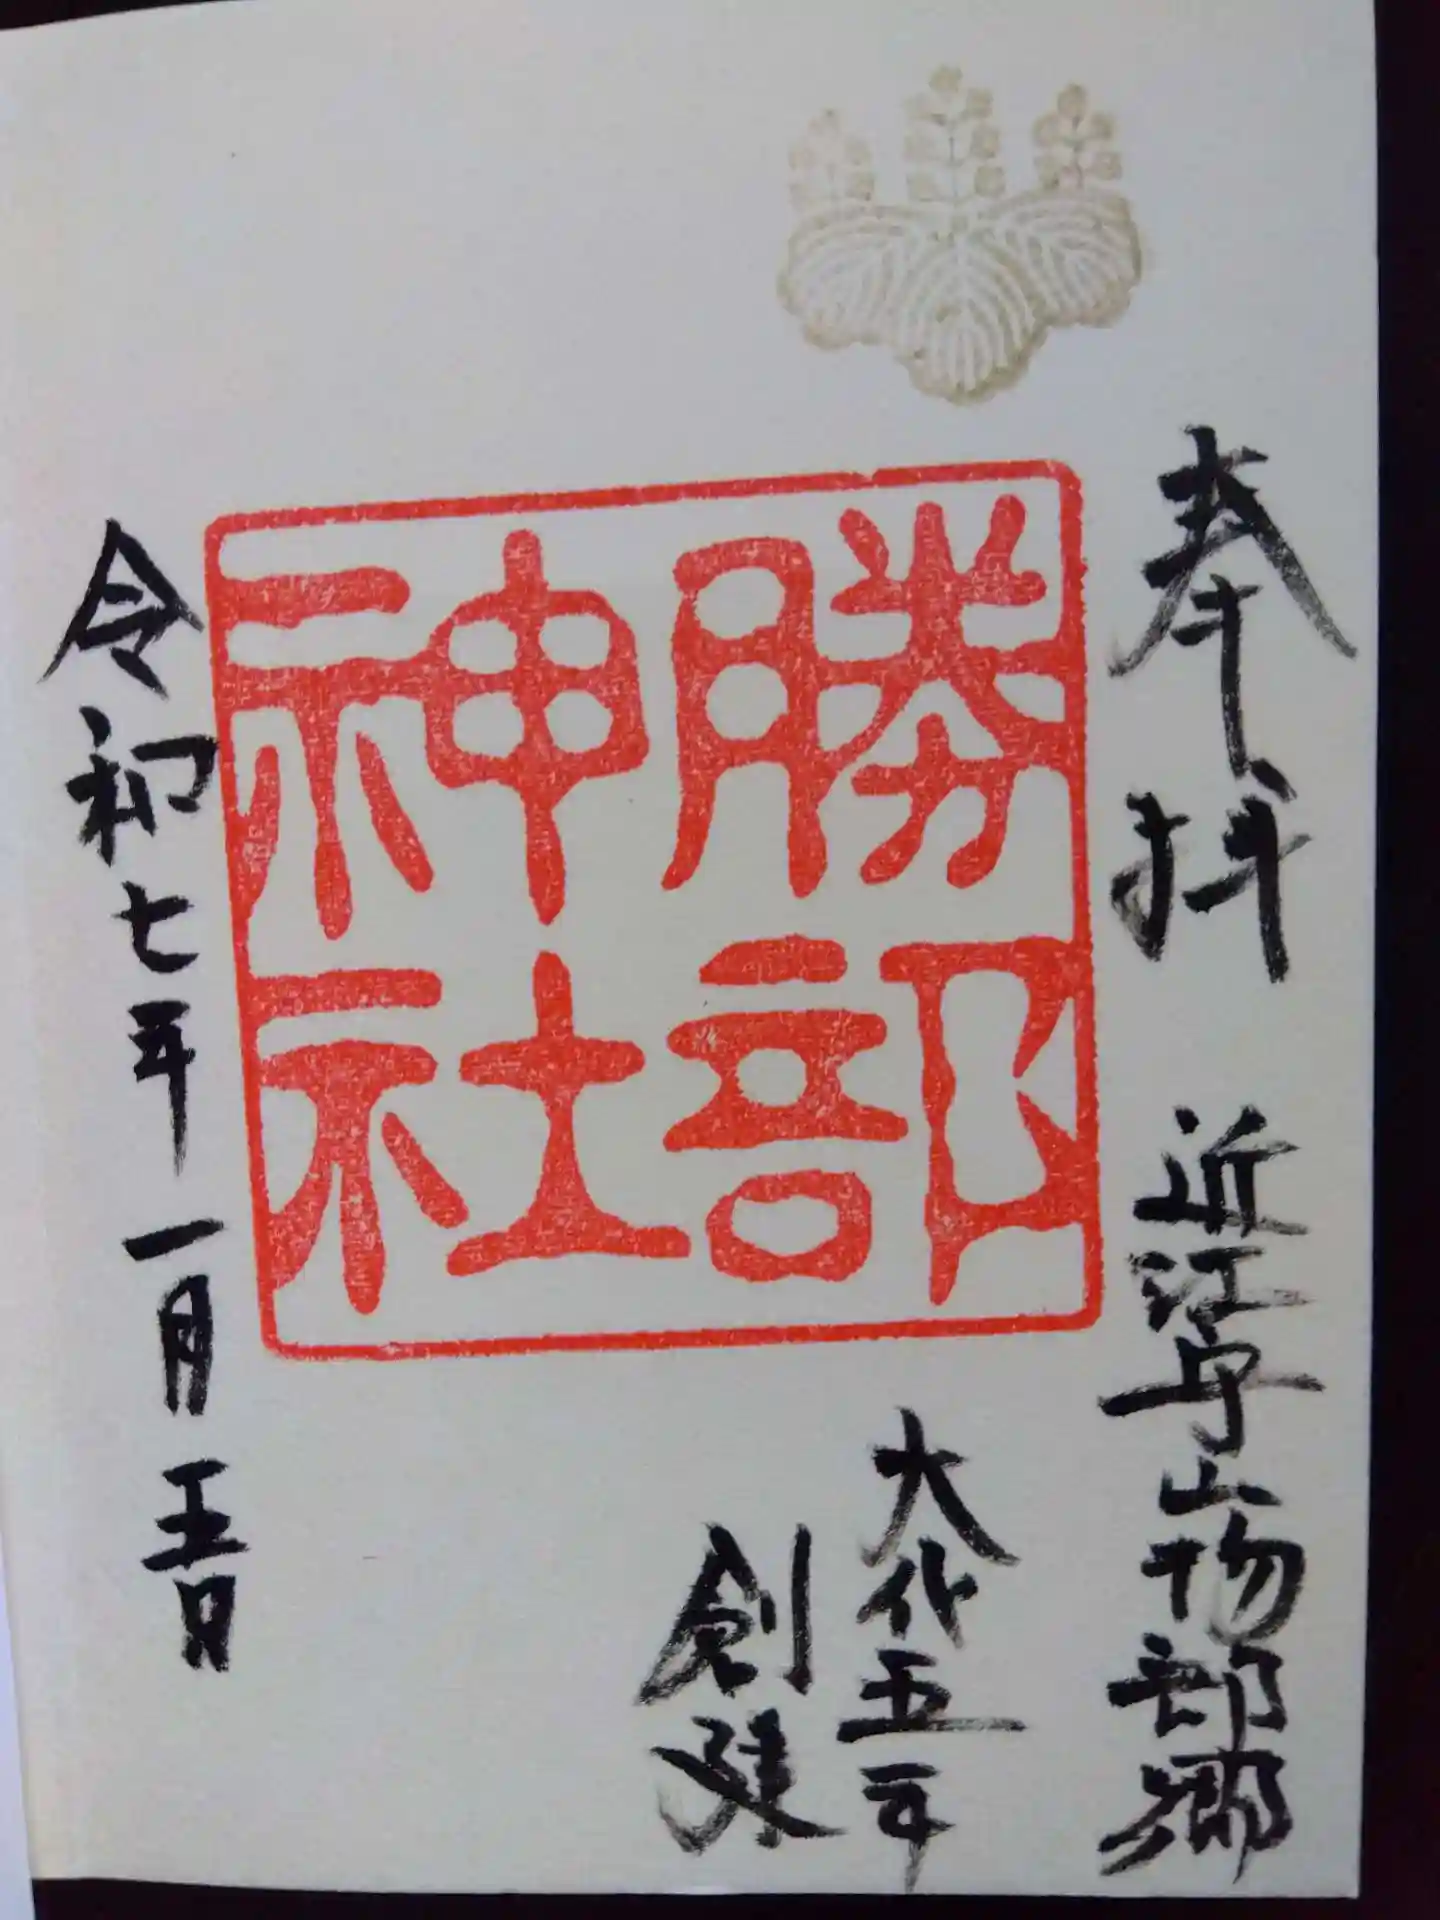 奉拝　近江守山物部郷
勝部
神社
大化五年
創建
令和七年一月五日